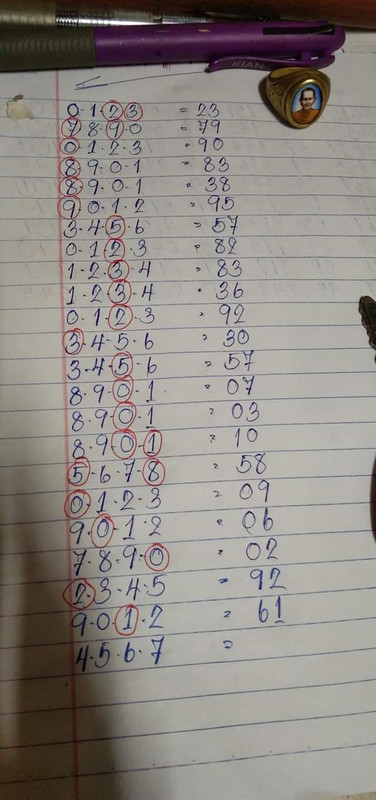 KIAN
0·1·2·3 = 23
7·8·9·0 = 79
0·1·2·3 = 90
8·9·0·1 = 83
8·9·0·1 = 38
9·0·1·2 = 95
3·4·5·6 = 57
0·1·2·3 = 82
1·2·3·4 = 83
1·2·3·4 = 36
0·1·2·3 = 92
3·4·5·6 = 30
3·4·5·6 = 57
8·9·0·1 = 07
8·9·0·1 = 03
8·9·0·1 = 10
5·6·7·8 = 58
0·1·2·3 = 09
9·0·1·2 = 06
7·8·9·0 = 02
2·3·4·5 = 92
9·0·1·2 = 61
4·5·6·7 =